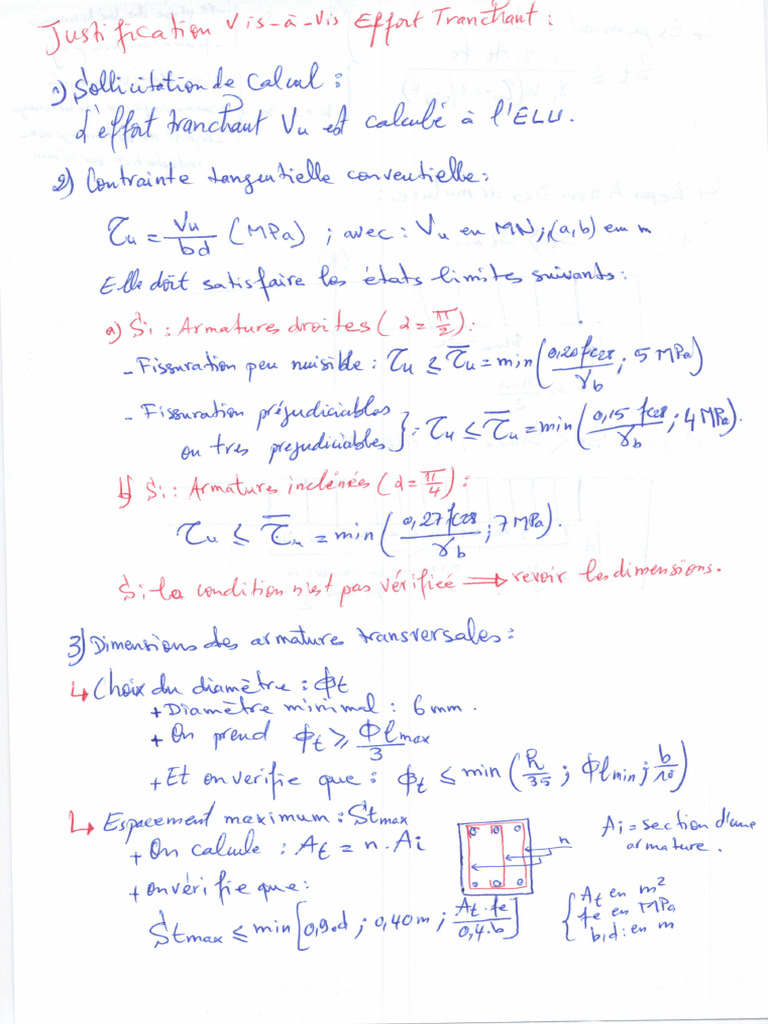 Justification vis-à-vis Effort Tranchant :
1) Sollicitation de calcul :
L'effort tranchant Vu est calculé à l'ELU.
2) Contrainte tangentielle conventielle :
τu = Vu / bd (MPa) ; avec : Vu en MN ; (a,b) em m
Elle doit satisfaire les états limites suivants :
a) Si : Armatures droites (α = π/2) :
- Fissuration peu nuisible : τu ≤ τ̄u = min(0,20 fc28 / γb ; 5 MPa)
- Fissuration préjudiciables
ou tres prejudiciables } : τu ≤ τ̄u = min(0,15 fc28 / γb ; 4 MPa).
b) Si : Armature inclénées (α = π/4) :
τu ≤ τ̄u = min(0,27 fc28 / γb ; 7 MPa).
Si la condition n'est pas vérifieé ⟹ revoir les dimensions.
3) Dimensions des armature transversales :
↳ Choix du diamètre : ϕt
+ Diamètre minimal : 6 mm.
+ On prend ϕt ≥ ϕlmax / 3
+ Et on verifie que : ϕt ≤ min(h/35 ; ϕlmin ; b/10)
↳ Espacement maximum : Stmax
+ On calcule : At = n . Ai
n
Ai = section d'une
armature.
+ on vérifie que :
Stmax ≤ min[0,9.d ; 0,40 m ; At . fe / 0,4.b]
{ At en m²
fe en MPa
b,d : en m